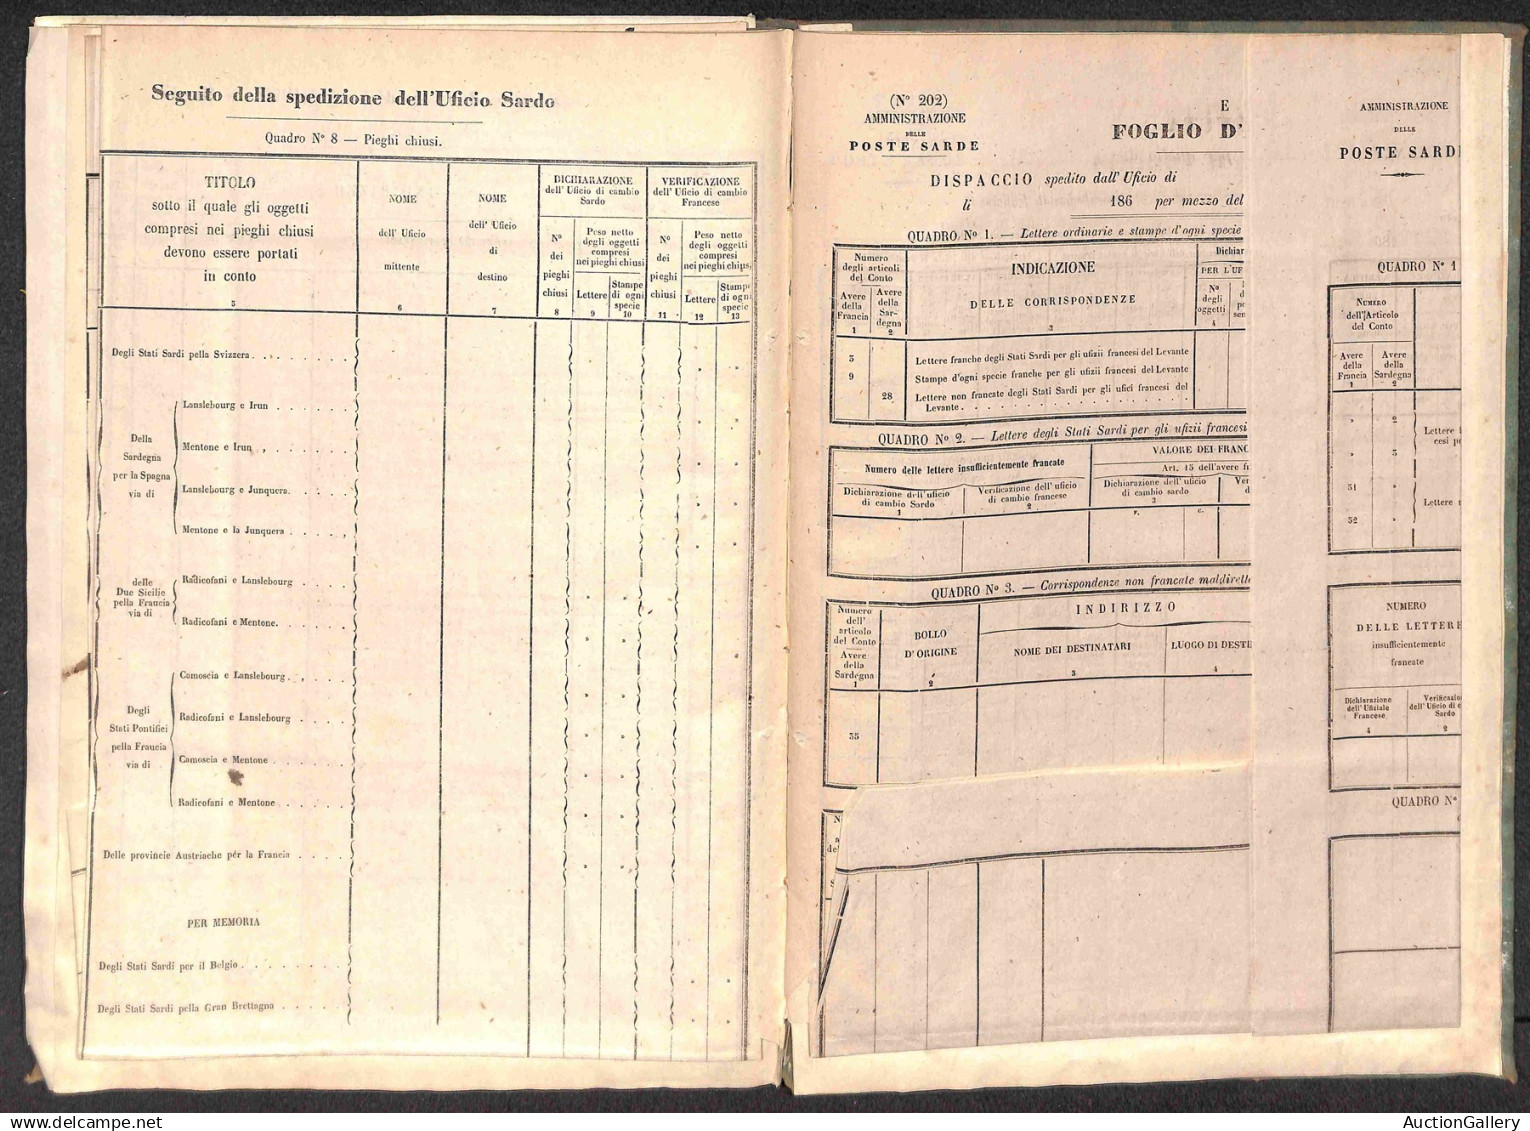 Seguito della spedizione dell'Uficio Sardo
Quadro N° 8 — Pieghi chiusi.
TITOLO
sotto il quale gli oggetti
compresi nei pieghi chiusi
devono essere portati
in conto
5
NOME
dell' Uficio
mittente
6
NOME
dell' Uficio
di
destino
7
DICHIARAZIONE
dell' Uficio di cambio
Sardo
N°
dei
pieghi
chiusi
8
Peso netto
degli oggetti
compresi
nei pieghi chiusi
Lettere
9
Stampe
di ogni
specie
10
VERIFICAZIONE
dell' Uficio di cambio
Francese
N°
dei
pieghi
chiusi
11
Peso netto
degli oggetti
compresi
nei pieghi chiusi
Lettere
12
Stampe
di ogni
specie
13
Degli Stati Sardi pella Svizzera . . . . . . . .
Della
Sardegna
per la Spagna
via di
Lanslebourg e Irun . . . . . . .
Mentone e Irun . . . . . . . .
Lanslebourg e Junquera. . . . . .
Mentone e la Junquera . . . . . .
delle
Due Sicilie
pella Francia
via di
Radicofani e Lanslebourg . . . . .
Radicofani e Mentone. . . . . . .
Degli
Stati Pontifici
pella Francia
via di
Camoscia e Lanslebourg . . . . .
Radicofani e Lanslebourg . . . . .
Camoscia e Mentone . . . . . . .
Radicofani e Mentone . . . . . .
Delle provincie Austriache per la Francia . . . . .
PER MEMORIA
Degli Stati Sardi per il Belgio . . . . . . . . .
Degli Stati Sardi pella Gran Brettagna . . . . . .
(N° 202)
AMMINISTRAZIONE
DELLE
POSTE SARDE
E
FOGLIO D'
DISPACCIO spedito dall' Uficio di
li 186 per mezzo del
QUADRO N° 1. — Lettere ordinarie e stampe d'ogni specie
Numero
degli articoli
del Conto
Avere
della
Francia
1
Avere
della
Sar-
degna
2
INDICAZIONE
DELLE CORRISPONDENZE
3
Dichiar
PER L'UF
N°
degli
oggetti
4
3 Lettere franche degli Stati Sardi per gli ufizii francesi del Levante
9 Stampe d'ogni specie franche per gli ufizii francesi del Levante
28 Lettere non francate degli Stati Sardi per gli ufici francesi del
Levante . . . . . . . . . . . . . . . .
QUADRO N° 2. — Lettere degli Stati Sardi per gli ufizii francesi
Numero delle lettere insufficientemente francate
Dichiarazione dell' uficio
di cambio Sardo
1
Verificazione dell' uficio
di cambio francese
2
VALORE DEI FRANC
Art. 15 dell'avere
Dichiarazione dell' uficio
di cambio sardo
3
Ver
d
F. C.
QUADRO N° 3. — Corrispondenze non francate maldirette
Numero
dell'
articolo
del Conto
Avere
della
Sardegna
1
BOLLO
D'ORIGINE
2
INDIRIZZO
NOME DEI DESTINATARI
3
LUOGO DI DESTI
4
35
AMMINISTRAZIONE
DELLE
POSTE SARD
QUADRO N° 1
Numero
dell'Articolo
del Conto
Avere
della
Francia
1
Avere
della
Sardegna
2
2
Lettere
cesi p
3
31
Lettere
32
NUMERO
DELLE LETTERE
insufficientemente
francate
Dichiarazione
dell' Ufiziale
Francese
Verificazio
dell'Uficio di
Sardo
2
QUADRO N°
AuctionGallery